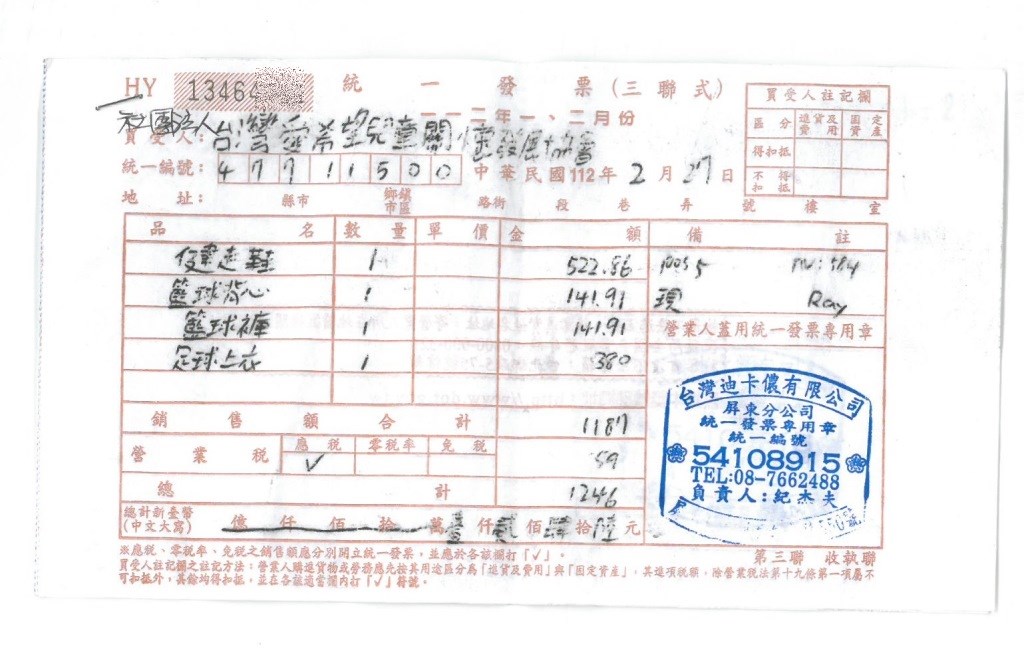 HY 13464 統一發票(三聯式)
一一二年一、二月份
買受人註記欄
區分 進貨及費用 固定資產
得扣抵
不得扣抵
社團法人
買受人:台灣愛希望兒童關懷發展協會
統一編號:47711500 中華民國112年2月27日
地址: 縣市 鄉鎮市區 路街 段 巷 弄 號 樓 室
品名 數量 單價 金額 備註
健走鞋 1 522.86 pos5
籃球背心 1 141.91 現 Ray
籃球褲 1 141.91 營業人蓋用統一發票專用章
足球上衣 1 380
銷售額合計 1187
營業稅 應稅 零稅率 免稅
✓ 59
總計 1246
總計新臺幣
(中文大寫) 億仟佰拾萬壹仟貳佰肆拾陸元
台灣迪卡儂有限公司
屏東分公司
統一發票專用章
統一編號
54108915
TEL:08-7662488
負責人:紀杰夫
※應稅、零稅率、免稅之銷售額應分別開立統一發票,並應於各該欄打「✓」。
第三聯 收執聯
買受人註記欄之註記方法:營業人購進貨物或勞務應先按其用途區分為「進貨及費用」與「固定資產」,其進項稅額,除營業稅法第十九條第一項屬不
可扣抵外,其餘均得扣抵,並在各該適當欄內打「✓」符號。